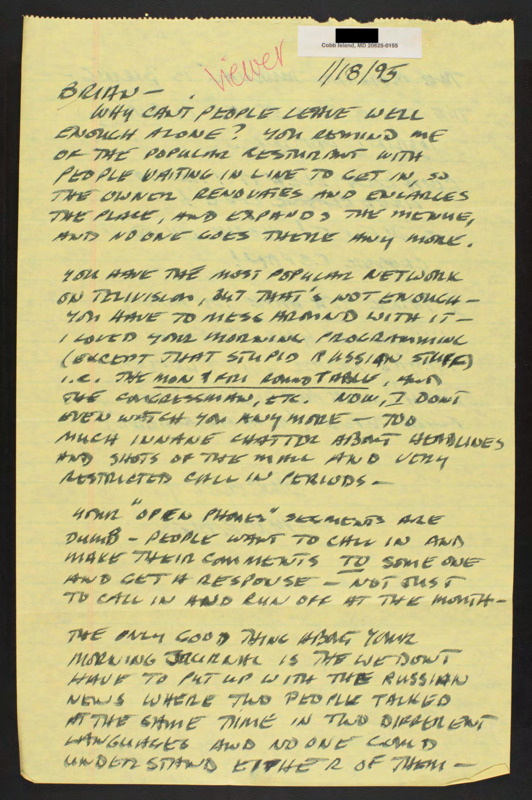 Cobb Island, MD 20625-0155
viewer
1/18/95
BRIAN —
WHY CAN'T PEOPLE LEAVE WELL
ENOUGH ALONE? YOU REMIND ME
OF THE POPULAR RESTURANT WITH
PEOPLE WAITING IN LINE TO GET IN, SO
THE OWNER RENOVATES AND ENLARGES
THE PLACE, AND EXPANDS THE MENUE,
AND NO ONE GOES THERE ANY MORE.
YOU HAVE THE MOST POPULAR NETWORK
ON TELIVISION, BUT THAT'S NOT ENOUGH —
YOU HAVE TO MESS AROUND WITH IT —
I LOVED YOUR MORNING PROGRAMMING
(EXCEPT THAT STUPID RUSSIAN STUFF)
I.E. THE MON & FRI ROUNDTABLE, AND
THE CONGRESSMAN, ETC. NOW, I DON'T
EVEN WATCH YOU ANY MORE — TOO
MUCH INNANE CHATTER ABOUT HEADLINES
AND SHOTS OF THE MALL AND VERY
RESTRICTED CALL IN PERIODS —
YOUR "OPEN PHONES" SEGMENTS ARE
DUMB — PEOPLE WANT TO CALL IN AND
MAKE THEIR COMMENTS TO SOME ONE
AND GET A RESPONSE — NOT JUST
TO CALL IN AND RUN OFF AT THE MOUTH —
THE ONLY GOOD THING ABOUT YOUR
MORNING JOURNAL IS THE WE DON'T
HAVE TO PUT UP WITH THE RUSSIAN
NEWS WHERE TWO PEOPLE TALKED
AT THE SAME TIME IN TWO DIFFERENT
LANGUAGES AND NO ONE COULD
UNDERSTAND EITHER OF THEM —